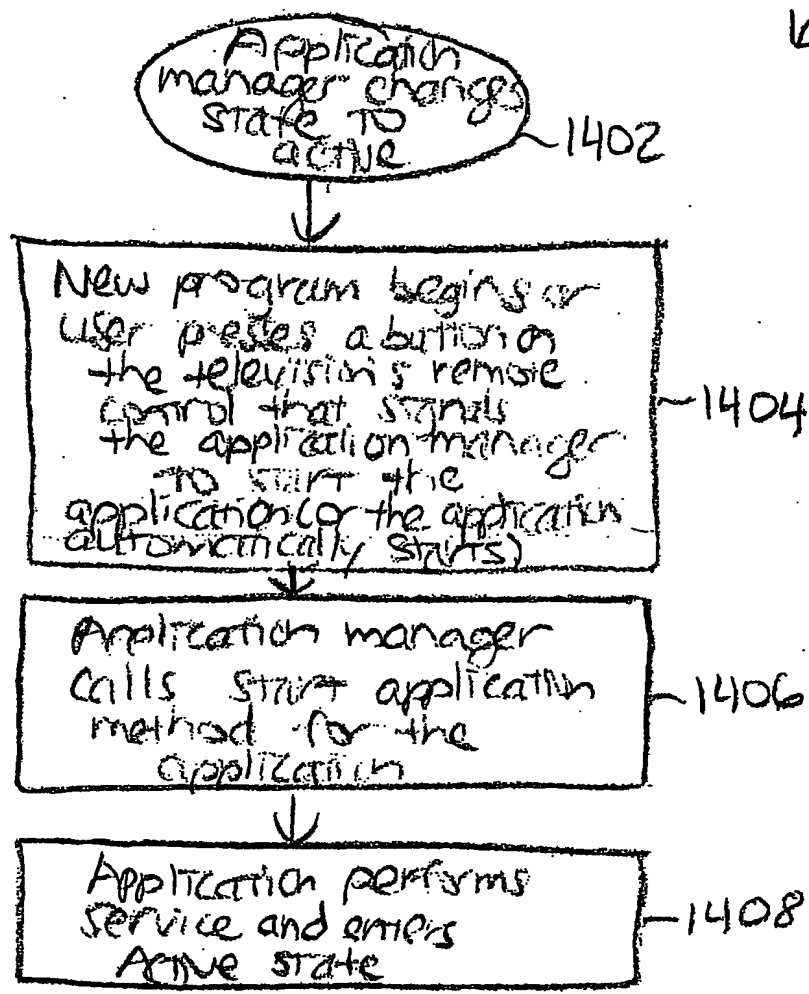 Application
manager changes
state to
active
1402
New program begins or
user presses a button on
the television's remote
control that
the application manager
to start the
application (or the application
automatically starts)
1404
Application manager
calls start application
method for the
application
1406
Application performs
service and enters
Active state
1408